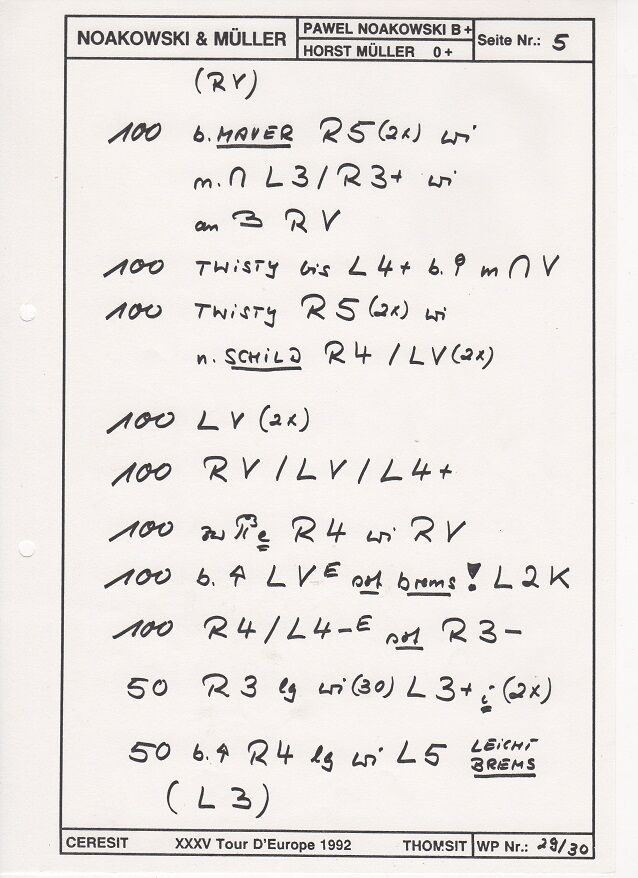 NOAKOWSKI & MÜLLER
PAWEL NOAKOWSKI B+
HORST MÜLLER 0+
Seite Nr.: 5
(RV)
100 b. MAUER R5 (2x) wi
m. ∩ L3/R3+ wi
an 3 RV
100 TWISTY bis L4+ b. m ∩ V
100 TWISTY R5 (2x) wi
n. SCHILD R4 / LV (2x)
100 LV (2x)
100 RV / LV / L4+
100 zw e R4 wi RV
100 b. ↑ LV E sot brems! L2K
100 R4/L4-E sot R3-
50 R3 lg wi (30) L3+ i (2x)
50 b. ↑ R4 lg wi L5 LEICHT BREMS
(L3)
CERESIT XXXV Tour D'Europe 1992 THOMSIT WP Nr.: 29/30